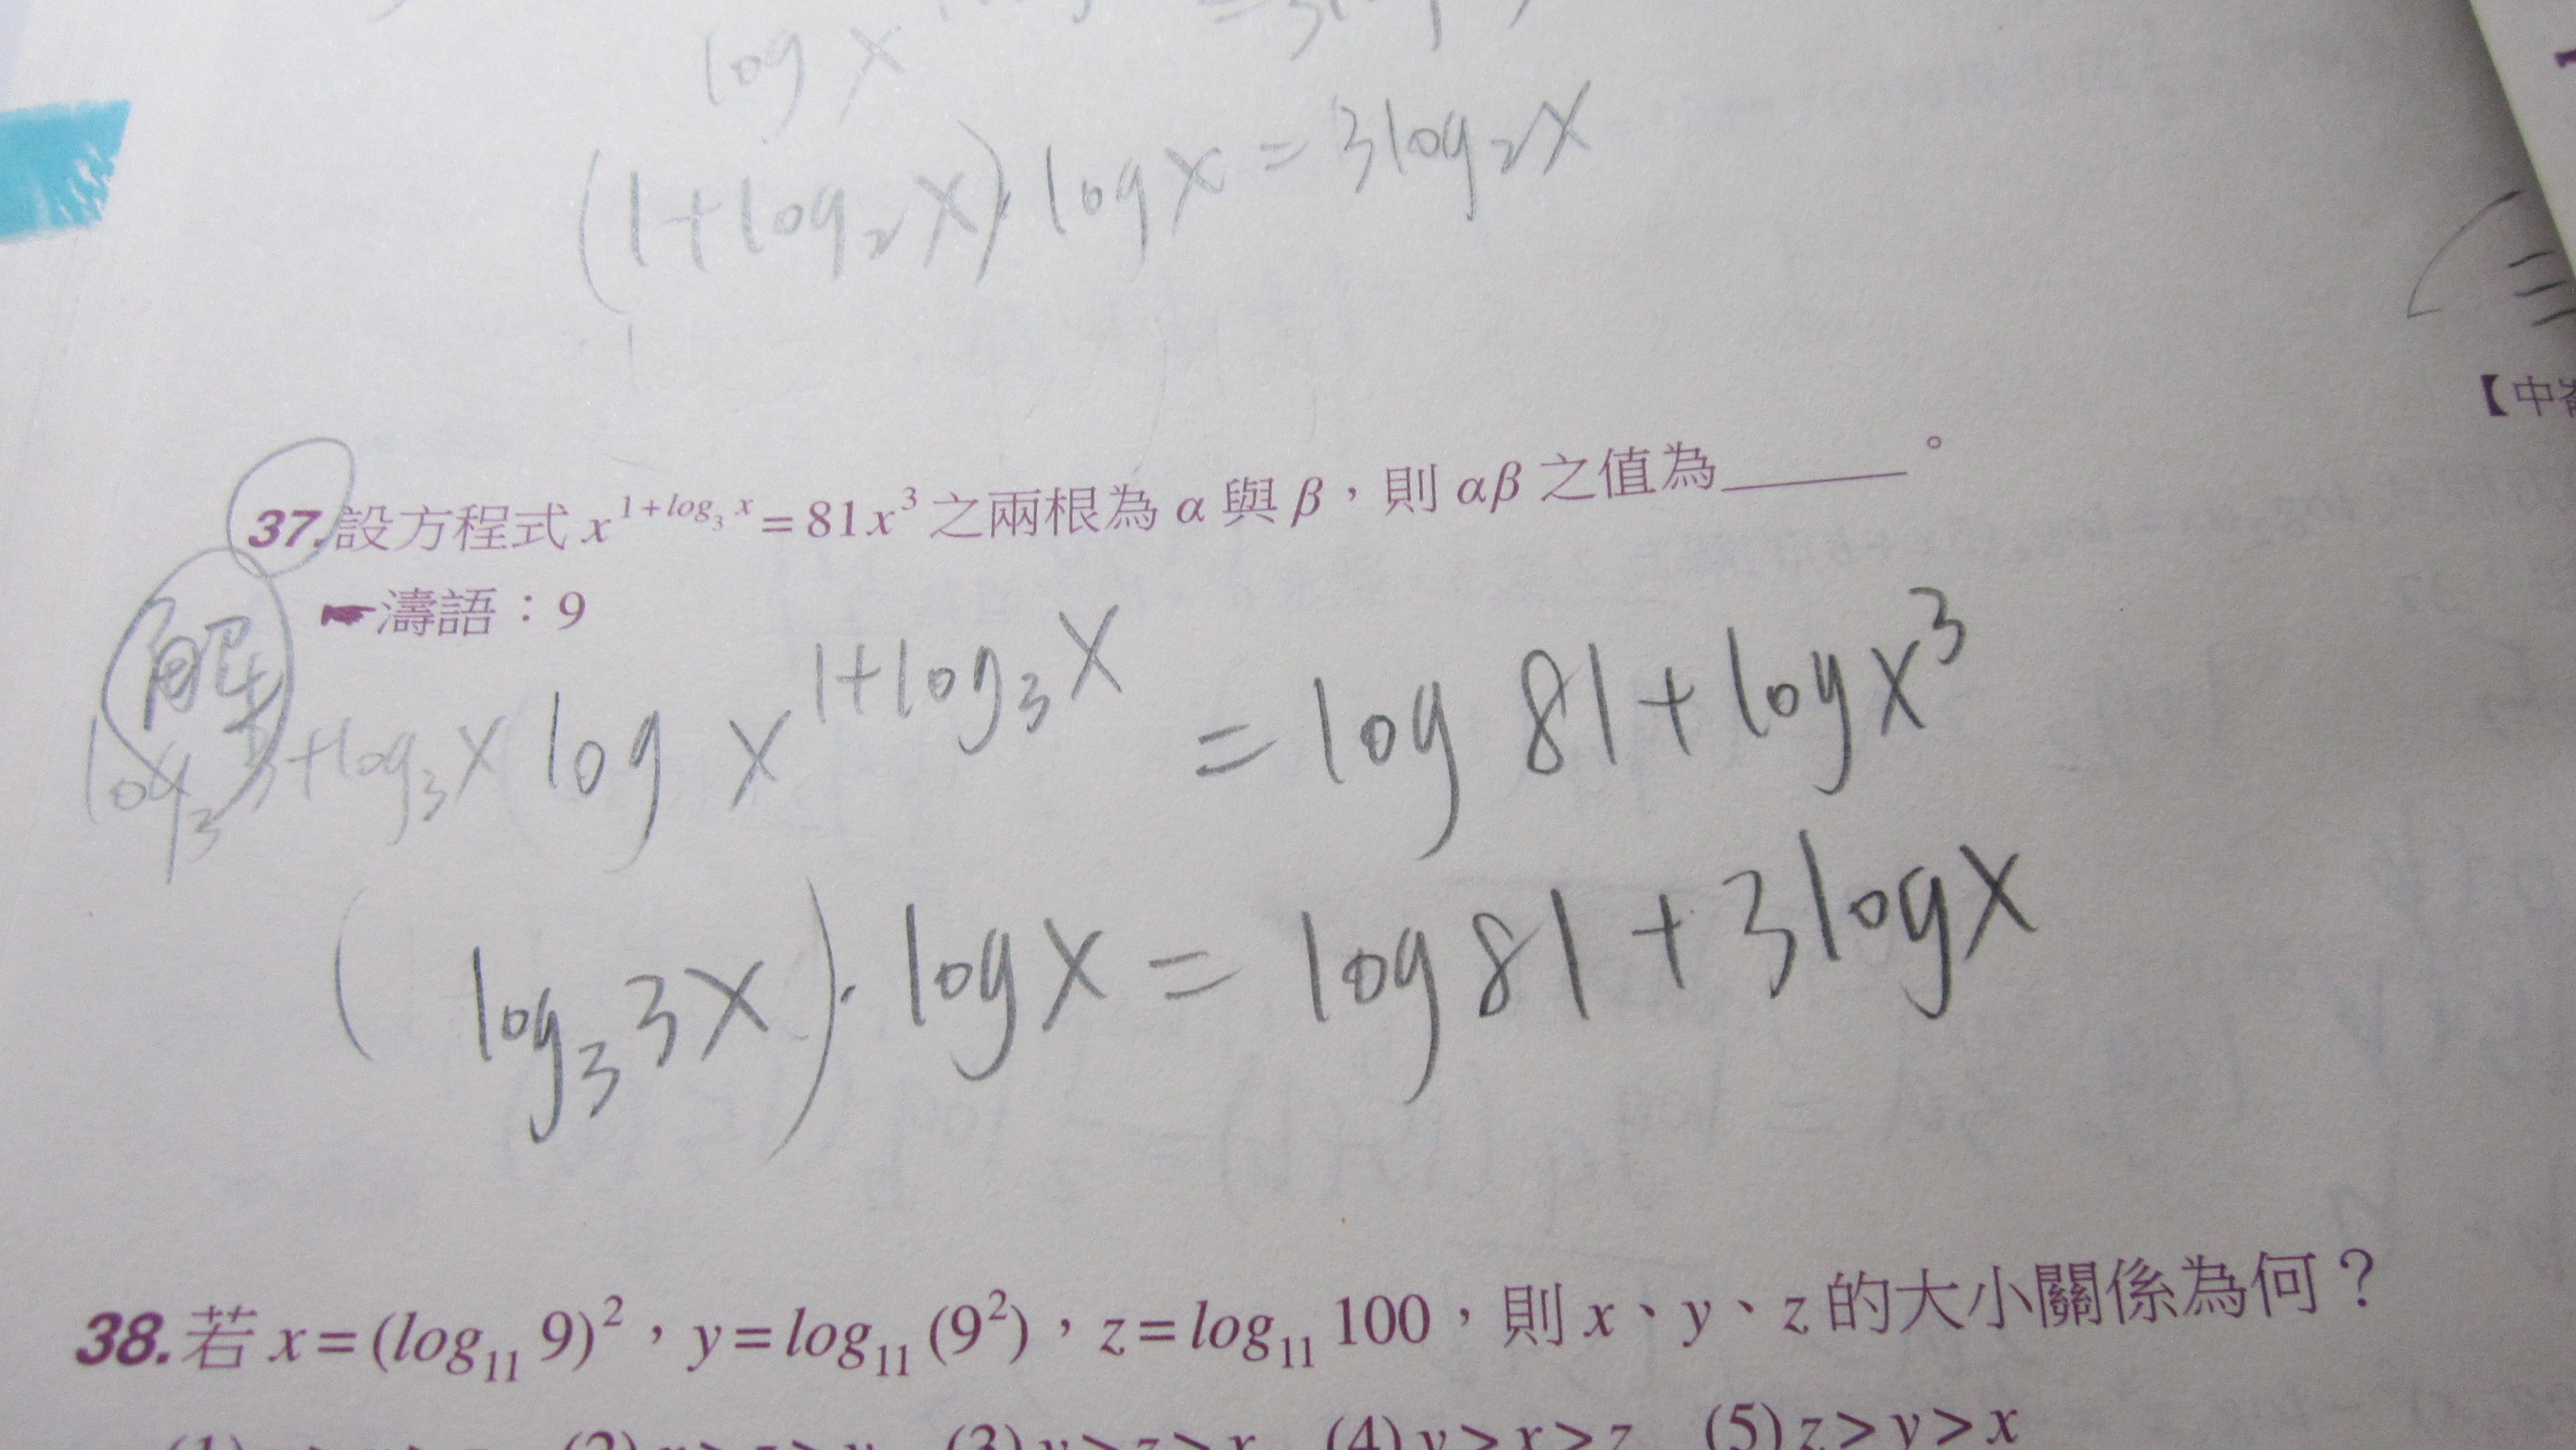 log x = 3log
(1+log₂x)·log x = 3log₂x
37.設方程式 x^{1+log₃ x} = 81x³ 之兩根為 α 與 β，則 αβ 之值為______。
【中
☛濤語：9
解
log₃3+log₃x log x^{1+log₃x} = log 81 + log x³
(log₃3x)·log x = log 81 + 3log x
38.若 x=(log₁₁ 9)²，y=log₁₁ (9²)，z=log₁₁ 100，則 x、y、z 的大小關係為何？
(4) y>x>z (5) z>y>x